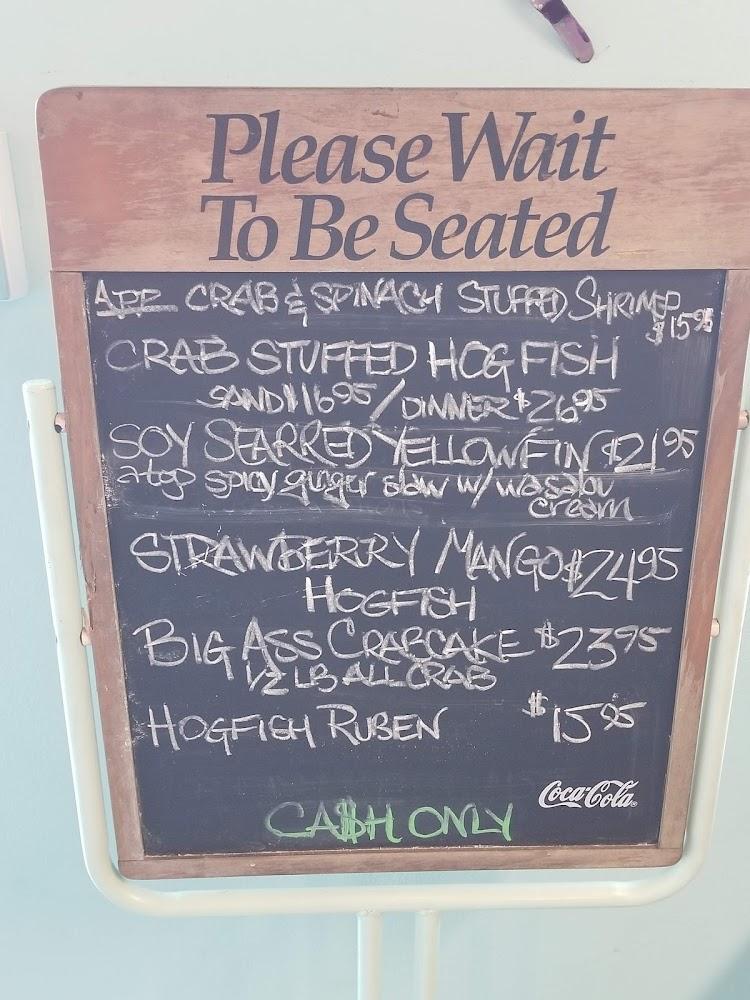 Please Wait
To Be Seated
APP CRAB & SPINACH STUFFED SHRIMP
$15 95
CRAB STUFFED HOG FISH
SAND $16 95 / DINNER $26 95
SOY SEARRED YELLOWFIN $21 95
atop spicy ginger slaw w/ wasabu
cream
STRAWBERRY MANGO $24 95
HOGFISH
BIG ASS CRABCAKE $23 95
1/2 LB ALL CRAB
HOGFISH RUBEN $15 95
Coca-Cola
CA$H ONLY